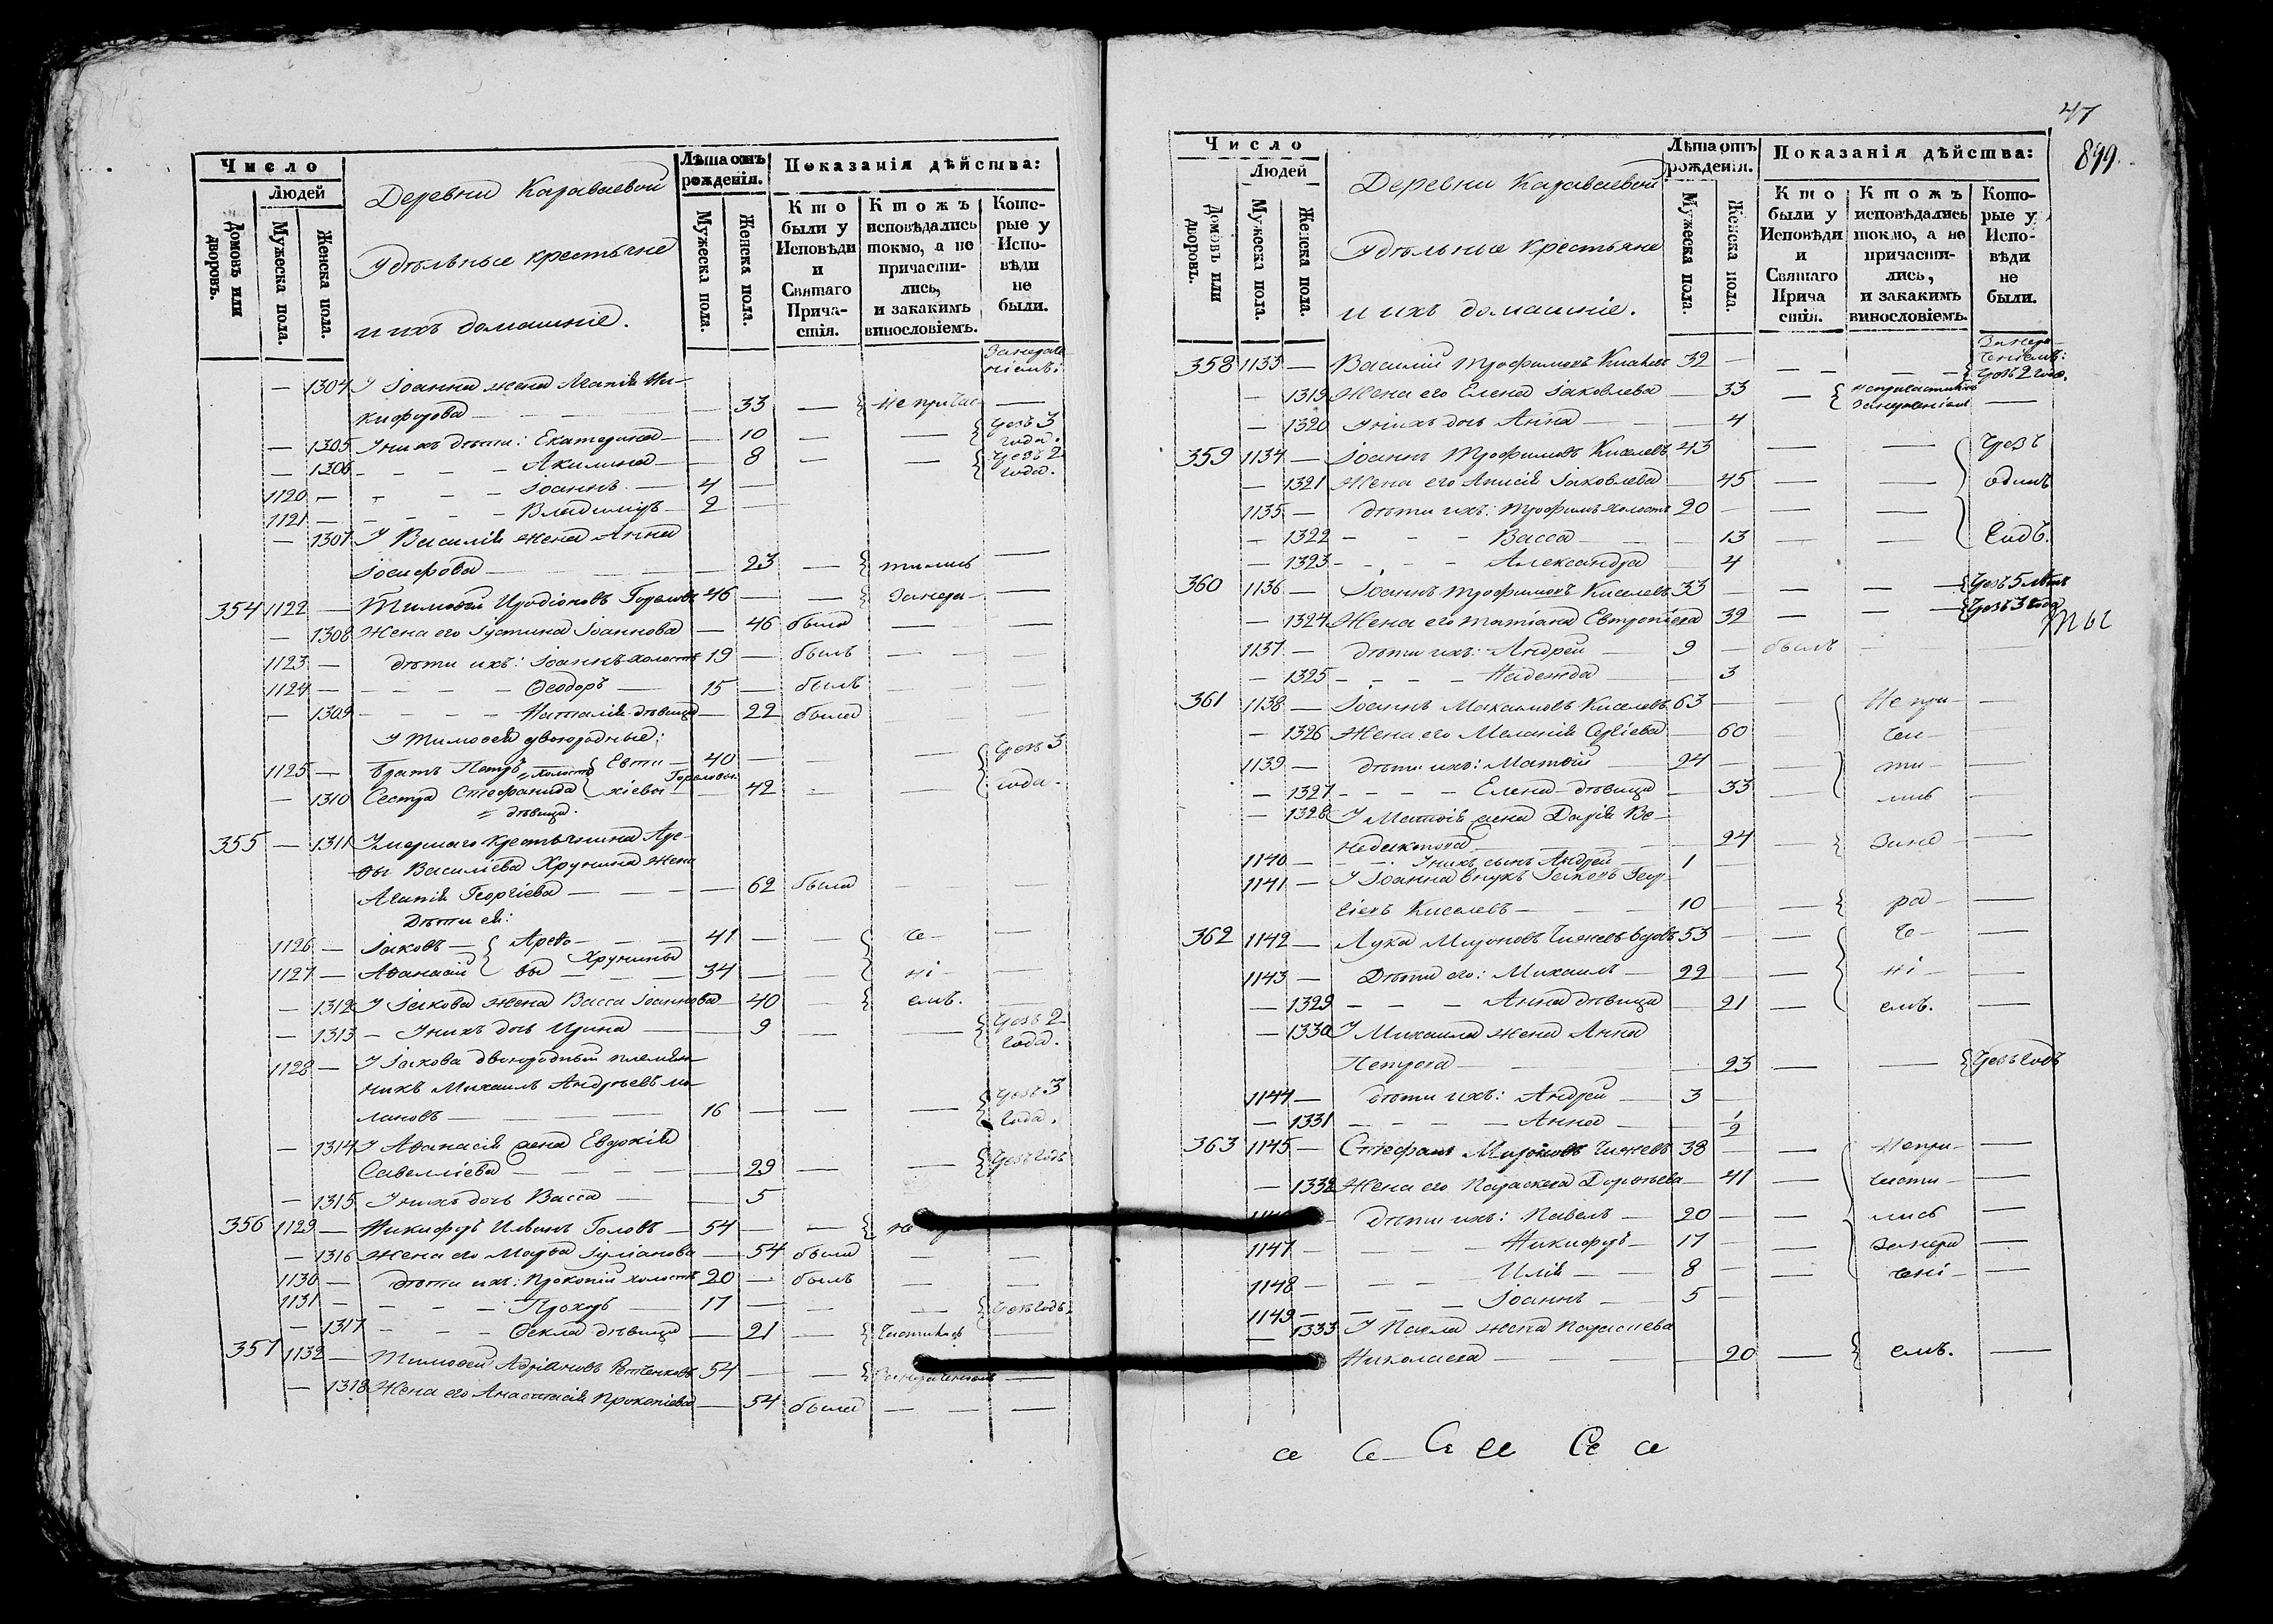 Число
Людей
Домовъ или дворовъ.
Мужеска пола.
Женска пола.
Деревни Караваевой
Удѣльные крестьяне
и ихъ домашніе.
Лѣта отъ рожденія.
Мужеска пола.
Женска пола.
Показанія дѣйства:
Кто были у Исповѣди и Святаго Причастія.
Ктожъ исповѣдались токмо, а не причастились, и закакимъ винословіемъ.
Которые у Исповѣди не были.
— 1304 У Іоанна жена Агапія Ни-
кифорова — — 33 — Непричас —
— 1305 У нихъ дѣти: Екатерина — — 10 — — Чрезъ 3 года.
— 1306 — — — Акилина — — 8 — — Чрезъ 2 года.
1120 — — — — Іоаннъ — 4 —
1121 — — — — Владиміръ — 2 —
— 1307 У Василія жена Анна
Іосифова — — 23 — тились —
354 1122 — Тимоѳей Иродіоновъ Гореловъ 46 — — Занера- —
— 1308 Жена его Іустина Іоаннова — 46 была — —
1123 — дѣти ихъ: Іоаннъ холостъ 19 — былъ — —
1124 — — — — Ѳеодоръ — 15 — былъ — —
— 1309 — — — Наталія дѣвица — 22 была — —
У Тимоѳея двоюродные:
1125 — братъ Петръ холостъ Евти- 40 — — — Чрезъ 3
— 1310 Сестра Стефанида хіевы Гореловы — 42 — — года.
дѣвица.
355 — 1311 Умершаго крестьянина Аре-
ѳы Василіева Хрунина жена
Агапія Георгіева — — — 62 была — —
Дѣти ея:
1126 — Іаковъ — Арефо- — 41 — — че- —
1127 — Аѳанасій вы Хрунины — 34 — — ні- —
— 1312 У Іакова жена Васса Іоаннова — 40 — емъ. —
— 1313 — У нихъ дочь Ирина — — 9 — — Чрезъ 2 года.
1128 — У Іакова двоюродный племян-
никъ Михаилъ Андреевъ
— 16 — — — Чрезъ 3 года.
— 1314 У Аѳанасія жена Евдокія
Савелліева — — — 29 — — Чрезъ годъ
— 1315 У нихъ дочь Васса — — 5
356 1129 — Никифоръ Ивановъ Головъ — 54 — —
— 1316 Жена его Марѳа Іуліанова — 54 была — —
1130 — дѣти ихъ: Прокопій холостъ 20 — былъ — —
1131 — — — — Прохоръ — 17 — — — Чрезъ годъ
— 1317 — — — Ѳекла дѣвица — 21 — частились —
357 1132 — Тимоѳей Адріановъ 54 — — Занераченіемъ —
— 1318 Жена его Анастасія Прокопіева — 54 была — —
47
899.
Число
Людей
Домовъ или дворовъ.
Мужеска пола.
Женска пола.
Деревни Караваевой
Удѣльные Крестьяне
и ихъ домашніе.
Лѣта отъ рожденія.
Мужеска пола.
Женска пола.
Показанія дѣйства:
Кто были у Исповѣди и Святаго Причастія.
Ктожъ исповѣдались токмо, а не причастились, и закакимъ винословіемъ.
Которые у Исповѣди не были.
358 1133 — Василій Трофимовъ Киселевъ 32 — — — Занера-ченіемъ: Чрезъ 2 года.
— 1319 Жена его Елена Іаковлева — 33 — —
— 1320 У нихъ дочь Анна — — 4
359 1134 — Іоаннъ Трофимовъ Киселевъ 43 — — Чрезъ
— 1321 Жена его Анисія Іаковлева — 45 — — одинъ
1135 — дѣти ихъ: Трофимъ холостъ 20 — — —
— 1322 — — — Васса — — 13 — — годъ.
— 1323 — — — Александра — 4
360 1136 — Іоаннъ Трофимовъ Киселевъ 33 — — — Чрезъ 5 лѣтъ
— 1324 Жена его Татіана Евтропіева 32 — — Чрезъ 3 года
ты
1137 — дѣти ихъ: Андрей — 9 — былъ — —
— 1325 — — — Надежда — 3
361 1138 — Іоаннъ Максимовъ Киселевъ 63 — — Не при- —
— 1326 Жена его Меланія Сергіева — 60 — час- —
1139 — дѣти ихъ: Матѳій — 24 — — ти- —
— 1327 — — — Елена дѣвица — 33 — лись —
— 1328 У Матѳія жена Дарія Ве-
недиктова — — 24 — Зане- —
1140 — — У нихъ сынъ Андрей — 1 —
1141 — У Іоанна внукъ Іаковъ Геор-
гіевъ Киселевъ — — 10 — — ра- —
362 1142 — Лука Мироновъ Чижевъ вдовъ 53 — — че- —
1143 — Дѣти его: Михаилъ — 22 — — ні- —
— 1329 — — — Анна дѣвица — 21 — емъ. —
— 1330 У Михаила жена Анна
Петрова — — 23 — — Чрезъ годъ
1144 — дѣти ихъ: Андрей — 3 —
— 1331 — — — Анна — — 1/2
363 1145 — Стефанъ Мироновъ Чижевъ 38 — — Непри- —
— 1332 Жена его Параскева Дороѳеева — 41 — части- —
дѣти ихъ: Павелъ — 20 — — лись —
1147 — — — Никифоръ — 17 — — Занера —
1148 — — — Илія — 8 — — чені- —
1149 — — — Іоаннъ — 5 —
— 1333 У Павла жена Параскева
Николаева — — — 20 — емъ. —